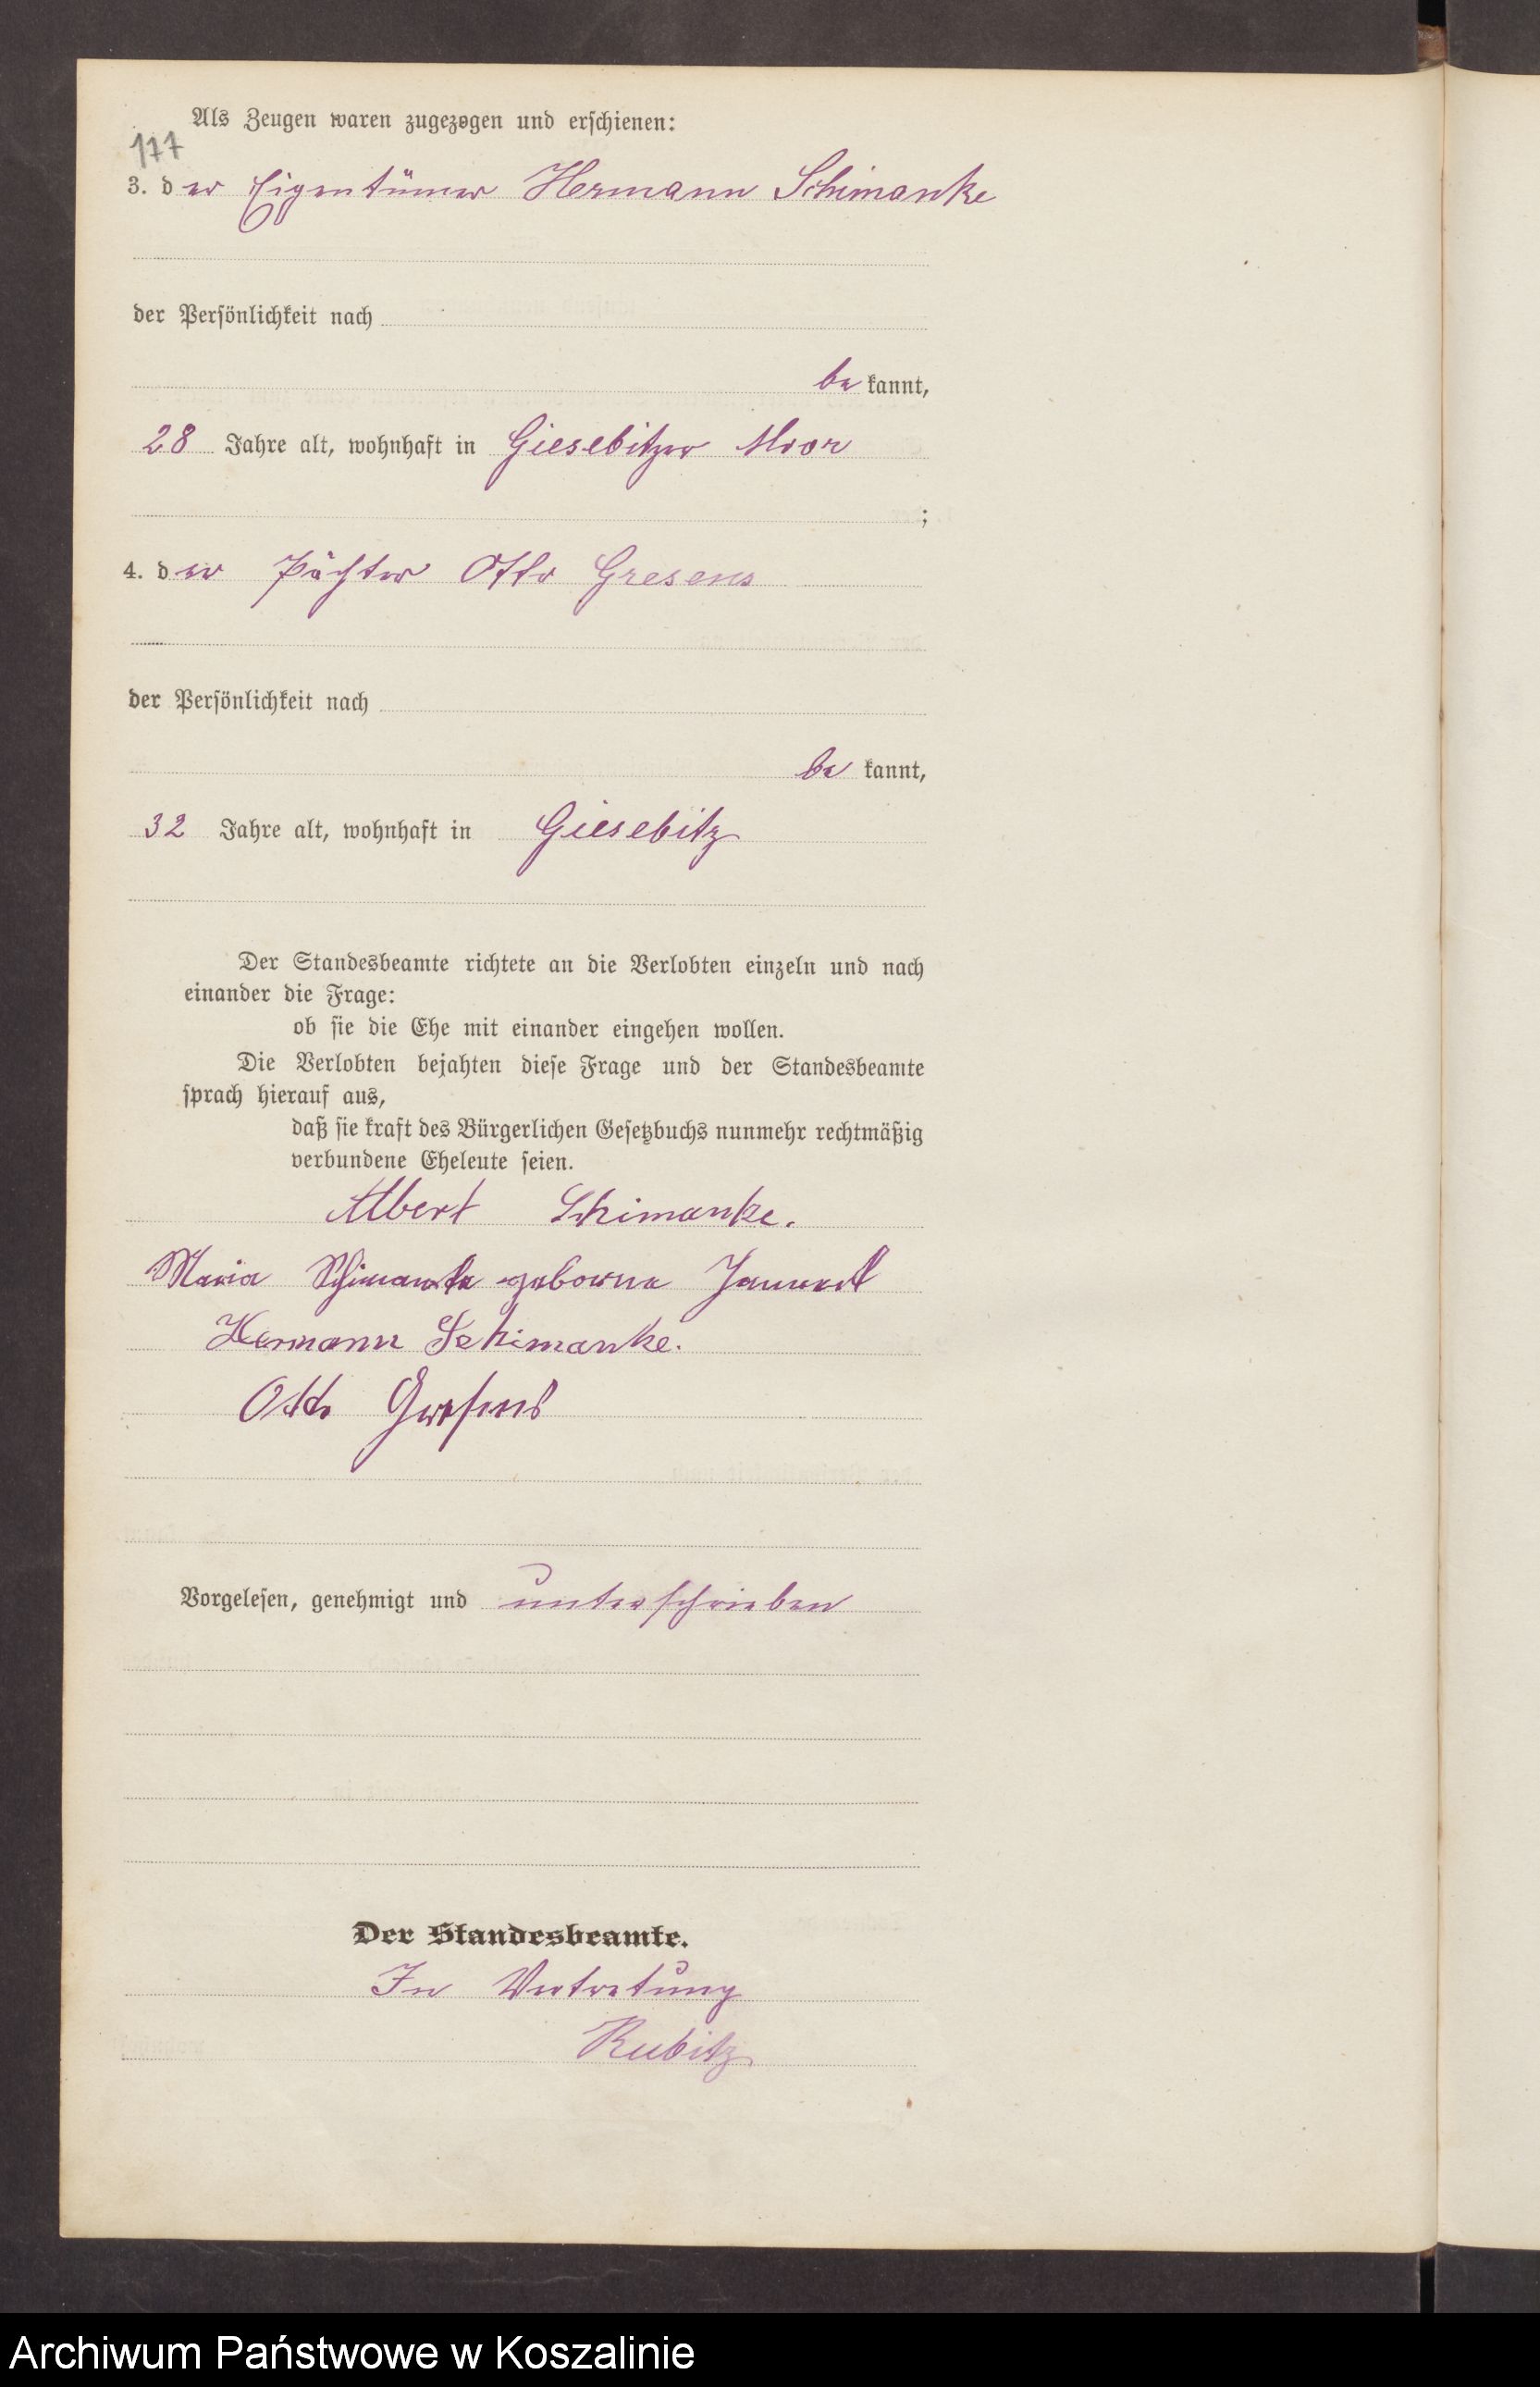 Als Zeugen waren zugezogen und erschienen:
177
3. der Eigentümer Hermann Schimanke
der Persönlichkeit nach
be kannt,
28 Jahre alt, wohnhaft in Giesebitzer Moor
;
4. der Pächter Otto Gresens
der Persönlichkeit nach
be kannt,
32 Jahre alt, wohnhaft in Giesebitz
Der Standesbeamte richtete an die Verlobten einzeln und nach
einander die Frage:
ob sie die Ehe mit einander eingehen wollen.
Die Verlobten bejahten diese Frage und der Standesbeamte
sprach hierauf aus,
daß sie kraft des Bürgerlichen Gesetzbuchs nunmehr rechtmäßig
verbundene Eheleute seien.
Albert Schimanke.
Maria Schimanke geborne
Hermann Schimanke.
Otto Gresens
Vorgelesen, genehmigt und unterschrieben
Der Standesbeamte.
In Vertretung
Rubitz
Archiwum Państwowe w Koszalinie